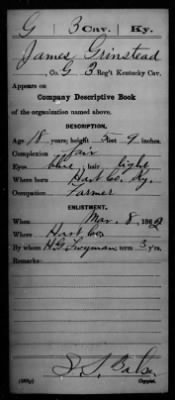 G 3 Cav. Ky.
James Grinstead
, Co. G, 3 Reg't Kentucky Cav.
Appears on
Company Descriptive Book
of the organization named above.
DESCRIPTION.
Age 18 years; height 5 feet 9 inches.
Complexion Fair
Eyes blue; hair light
Where born Hart Co. Ky.
Occupation Farmer
ENLISTMENT.
When Mar. 8, 1862
Where Hart Co.
By whom H G Twyman term 3 y'rs.
Remarks:
Copyist.